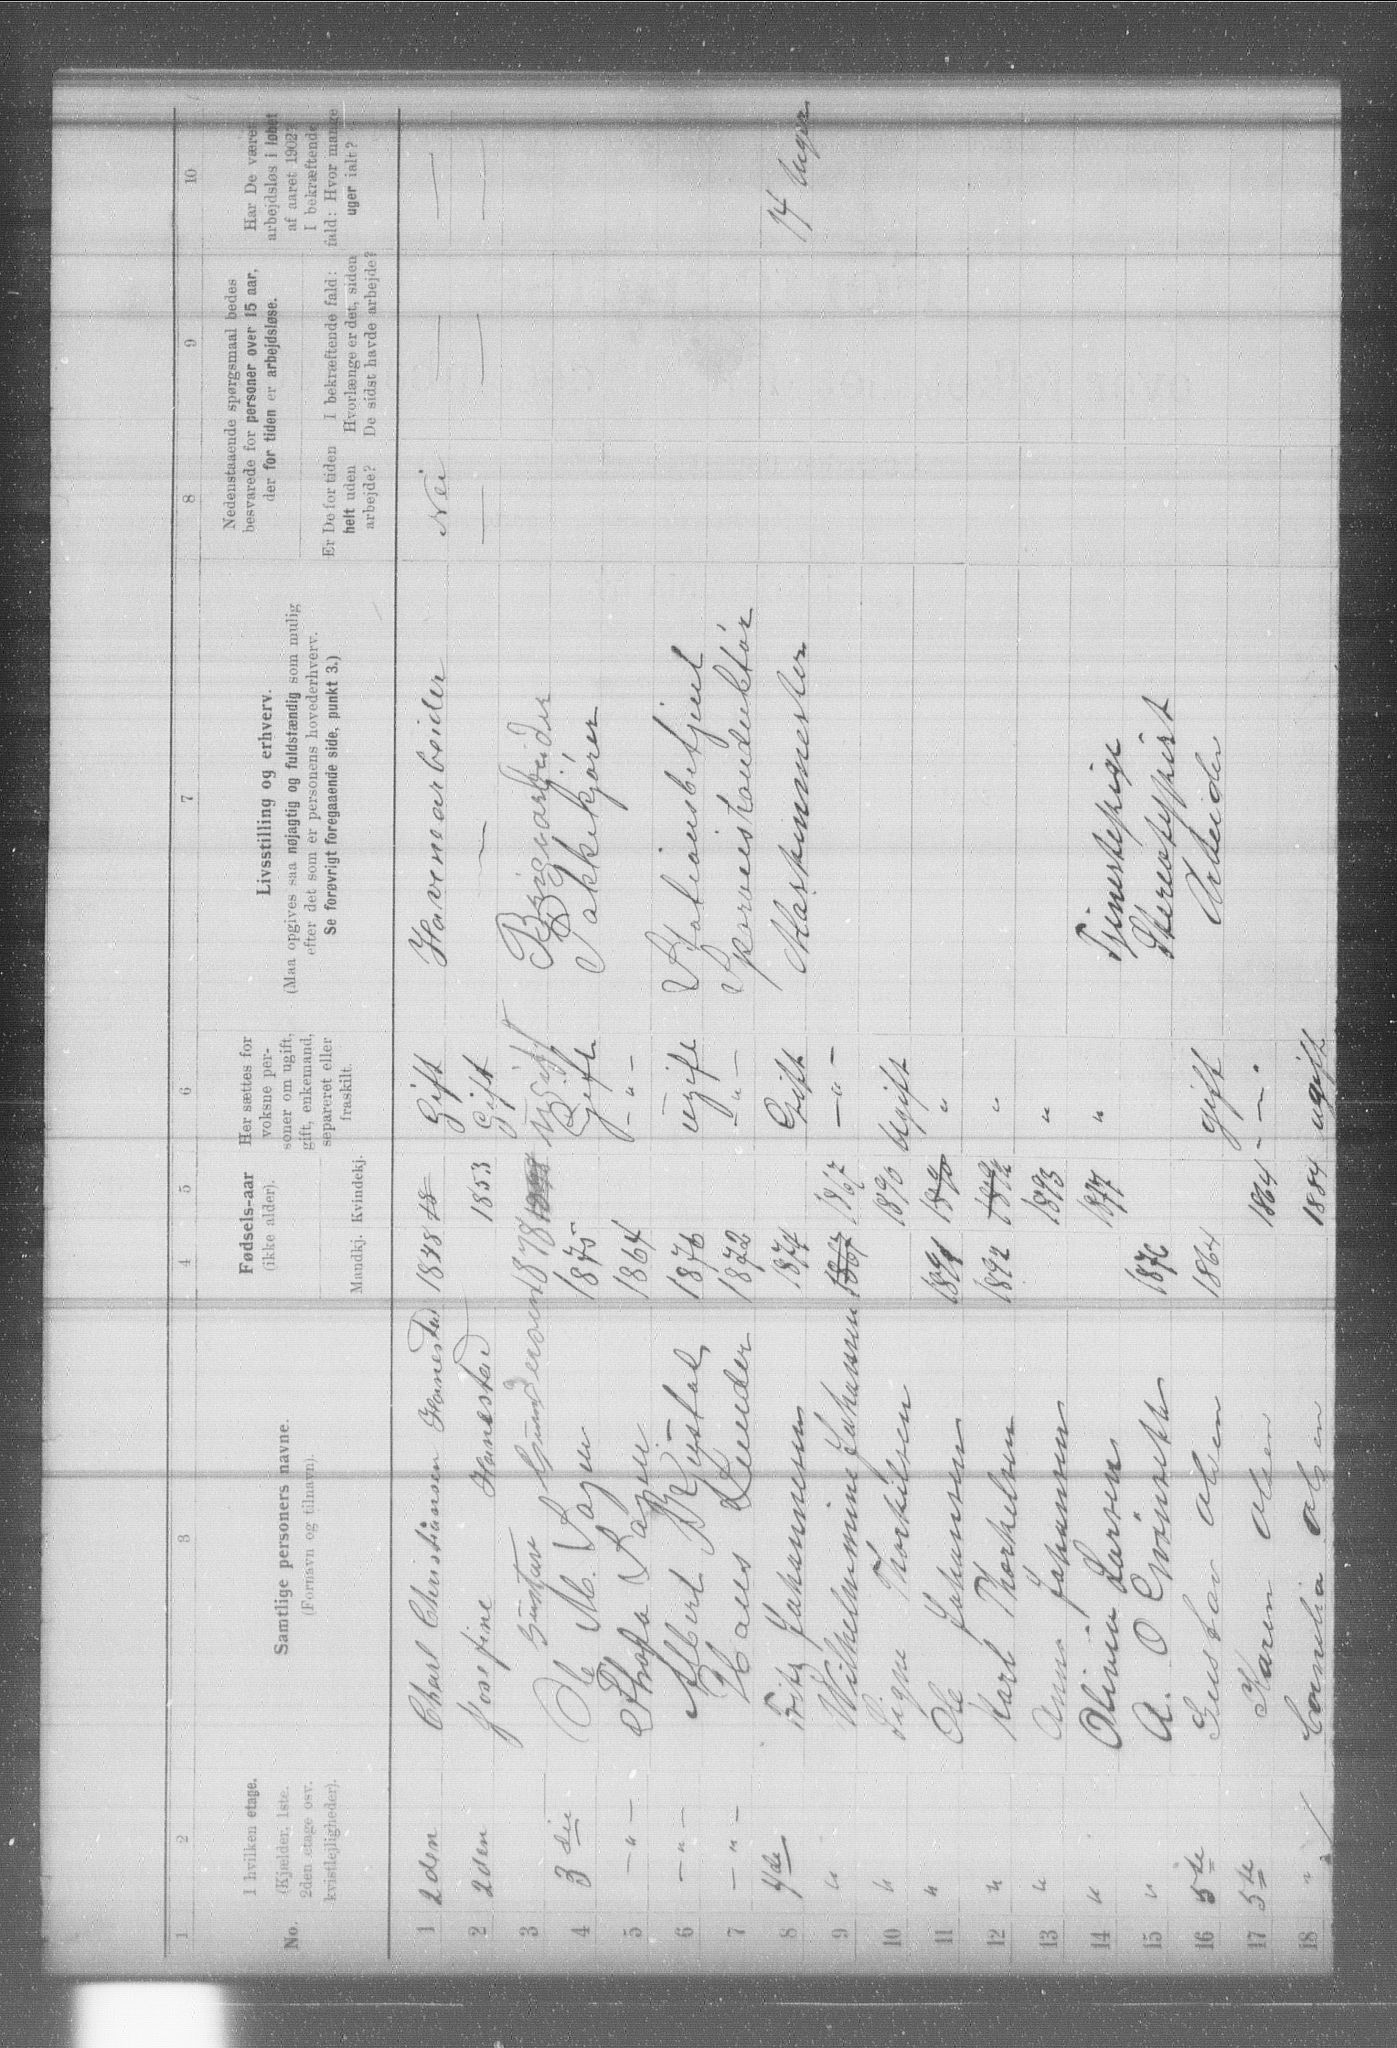 1 2 3 4 5 6 7 8 9 10
No.
I hvilken etage.
(Kjælder, 1ste.
2den etage osv.
kvistlejligheder).
Samtlige personers navne.
(Fornavn og tilnavn).
Fødsels-aar
(ikke alder).
Mandkj. Kvindekj.
Her sættes for
voksne per-
soner om ugift,
gift, enkemand,
separeret eller
fraskilt.
Livsstilling og erhverv.
(Maa opgives saa nøjagtig og fuldstændig som mulig
efter det som er personens hovederhverv.
Se forøvrigt foregaaende side, punkt 3.)
Nedenstaaende spørgsmaal bedes
besvarede for personer over 15 aar,
der for tiden er arbejdsløse.
Er De for tiden
helt uden
arbejde?
I bekræftende fald:
Hvorlænge er det, siden
De sidst havde arbejde?
Har De været
arbejdsløs i løbet
af aaret 1902?
I bekræftende
fald: Hvor mange
uger ialt?
1 2den Charl Christiansen Hanestad 1848 Gift Havnearbeider Nei — —
2 2den Josefine Hanestad 1853 Gift — — — —
3 Gustav Gundersen 1878 ugift Brigvarbeider
4 3die Ole M. Sagen 1875 Gift Pakkekjører
5 —"— Sagen 1864 —"—
6 —"— Albert Rystad 1876 ugift Stationsbetjent
7 —"— Hans Lunder 1872 —"— Sporveiskonduktør
8 4de Fritz Johannesen 1874 Gift Maskinmester 14 uger
9 " Wilhelmine Johannsen 1867 1867 —"—
10 " Signe Thorkilsen 1890 Ugift
11 " Ole Johansen 1891 1890 "
12 " Karl Thorkelsen 1892 1892 "
13 " Anna Johansen 1893 "
14 " Olivia Larsen 1877 " Tjenestepige
15 " A. O Grønseth 1876 Stereotypist
16 5te Gustav Olsen 1864 gift Arbeider
17 5te Karen Olsen 1864 —"—
18 " Cornelia Olsen 1884 ugift